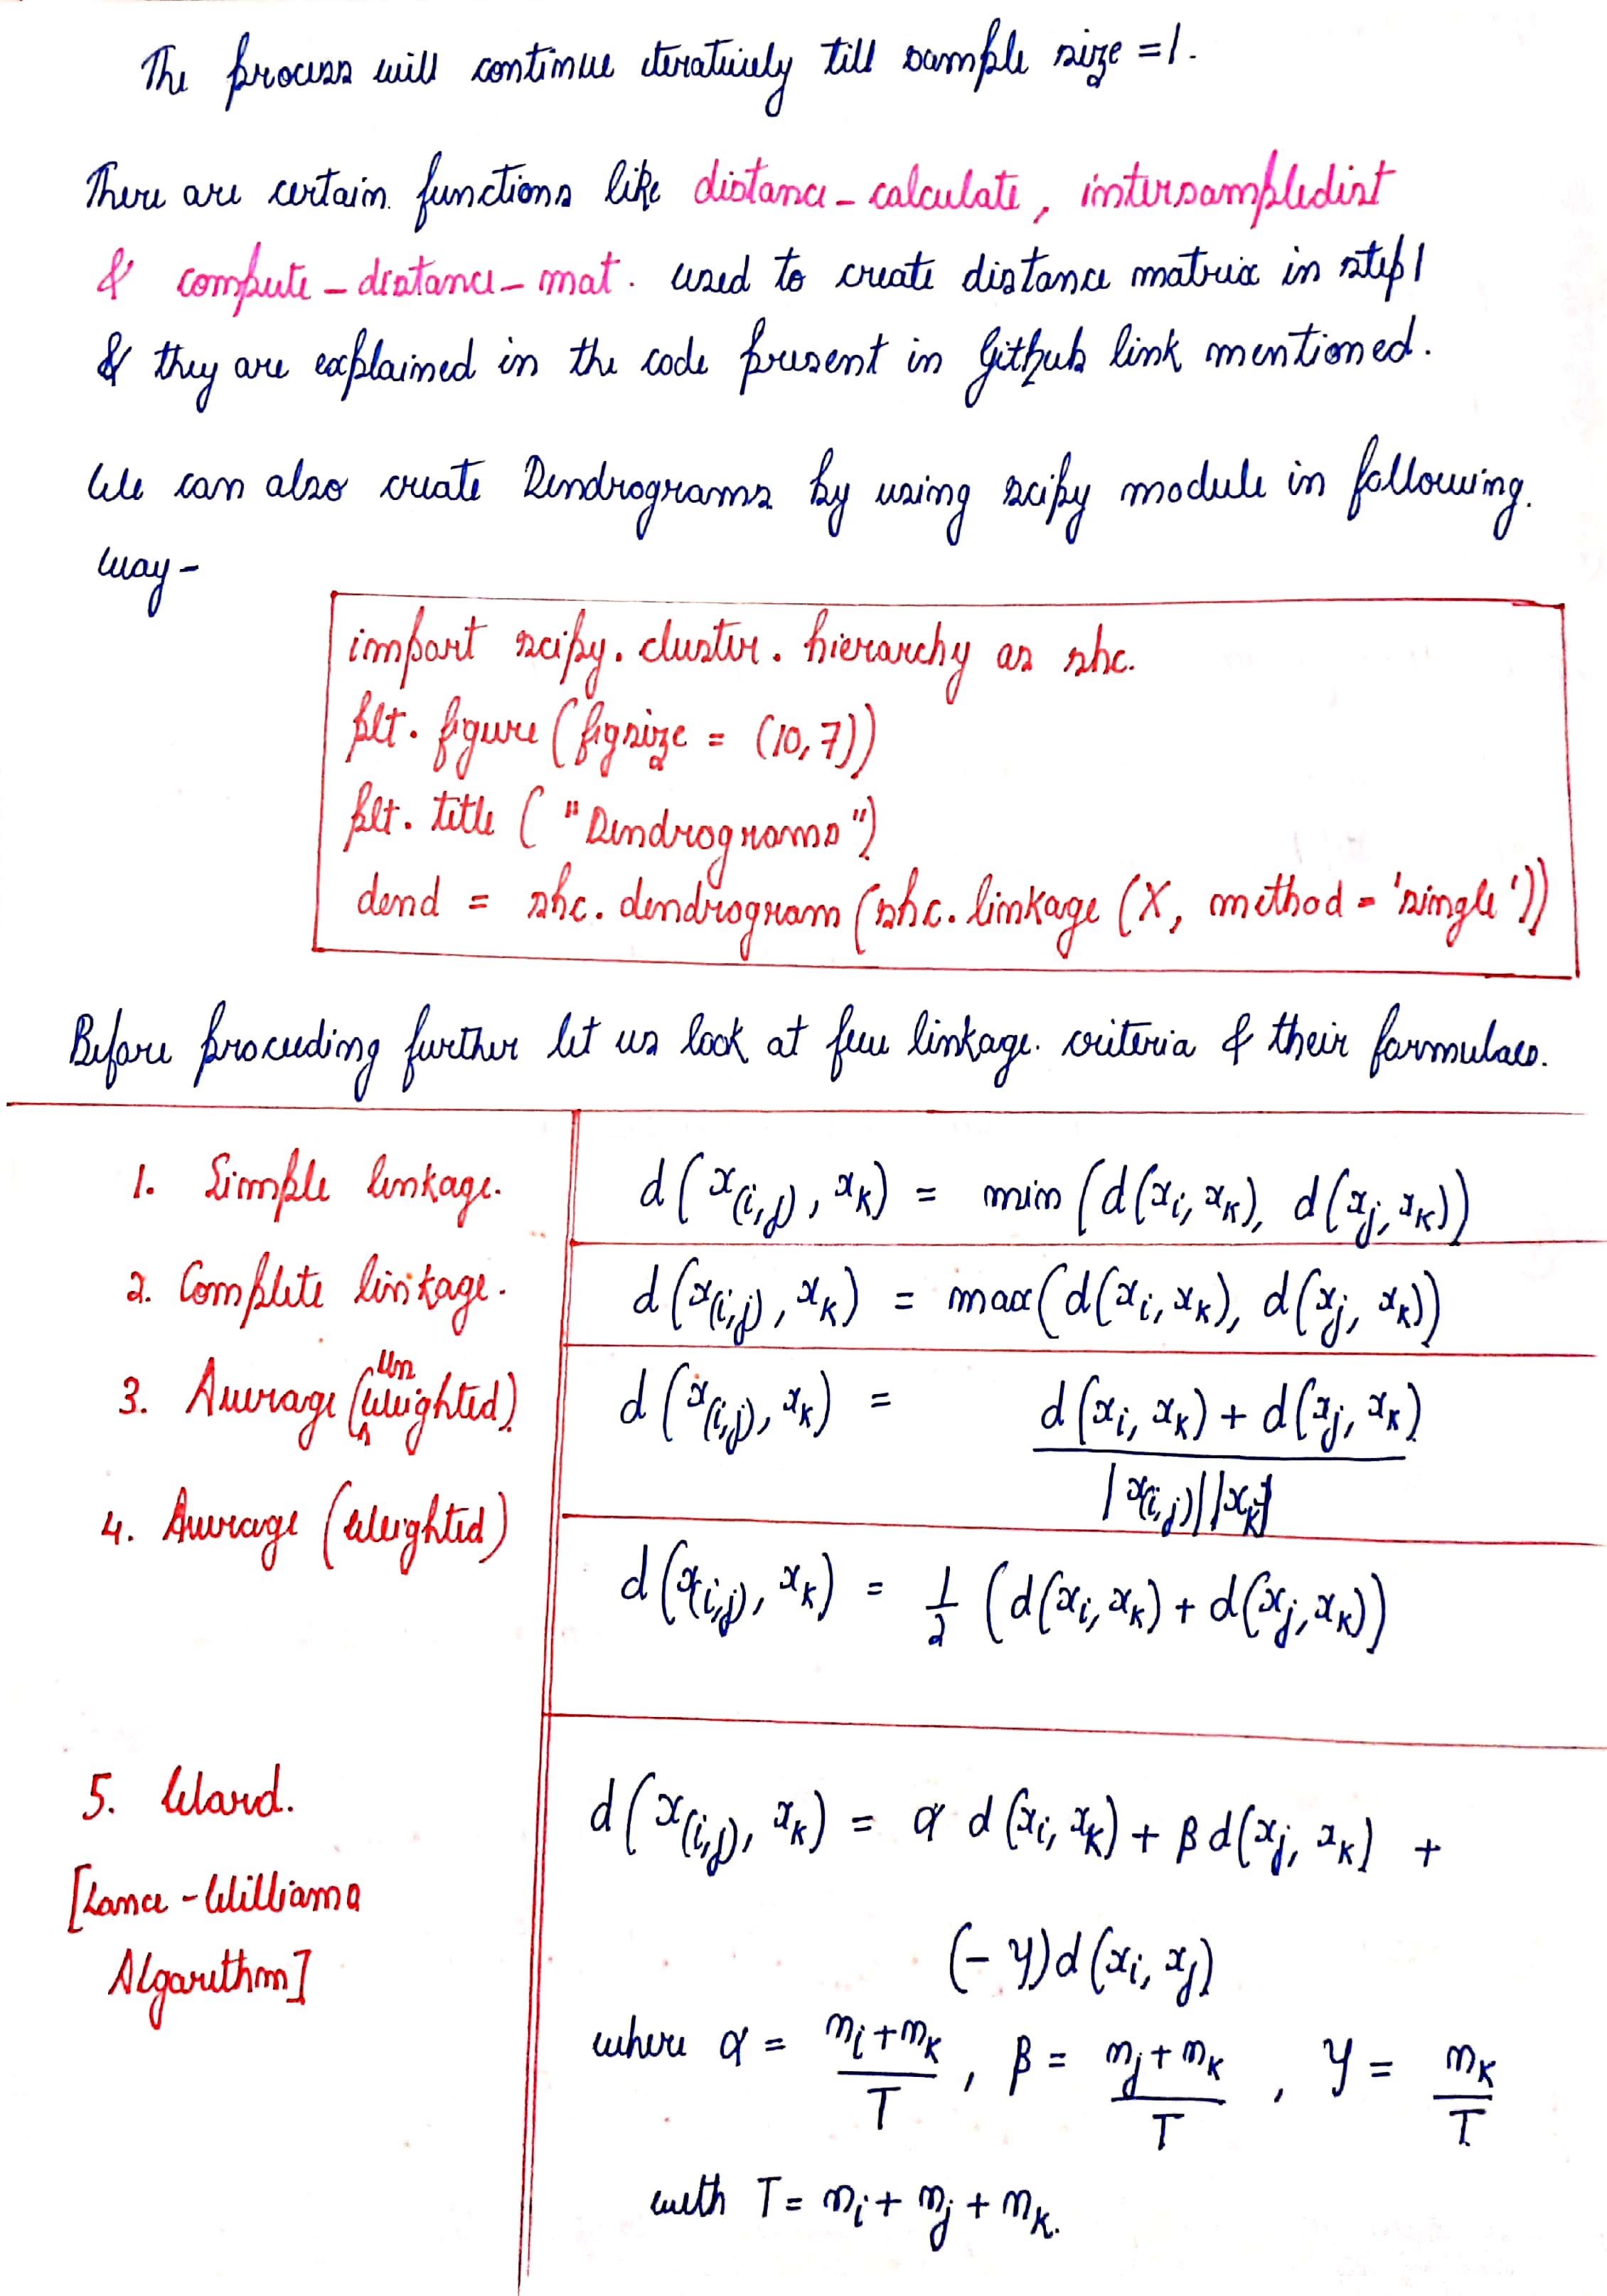 The process will continue iteratively till sample size = 1.
There are certain functions like distance_calculate, intersampledist
& compute_distance_mat. used to create distance matrix in step 1
& they are explained in the code present in Github link mentioned.
We can also create Dendrograms by using scipy module in following.
way -
import scipy.cluster.hierarchy as shc.
plt.figure(figsize = (10,7))
plt.title("Dendrograms")
dend = shc.dendrogram(shc.linkage(X, method = 'single'))
Before proceeding further let us look at few linkage. criteria & their formulaes.
1. Simple linkage. d(x(i,j), xk) = min(d(xi, xk), d(xj, xk))
2. Complete linkage. d(x(i,j), xk) = max(d(xi, xk), d(xj, xk))
3. Average (Unweighted) d(x(i,j), xk) = d(xi, xk) + d(xj, xk)
|x(i,j)||xk|
4. Average (Weighted) d(x(i,j), xk) = 1/2 (d(xi, xk) + d(xj, xk))
5. Ward. d(x(i,j), xk) = α d(xi, xk) + β d(xj, xk) +
[Lance-Williams
(-γ)d(xi, xj)
Algorithm]
where α = ni+nk/T, β = nj+nk/T, γ = nk/T
with T = ni + nj + nk.